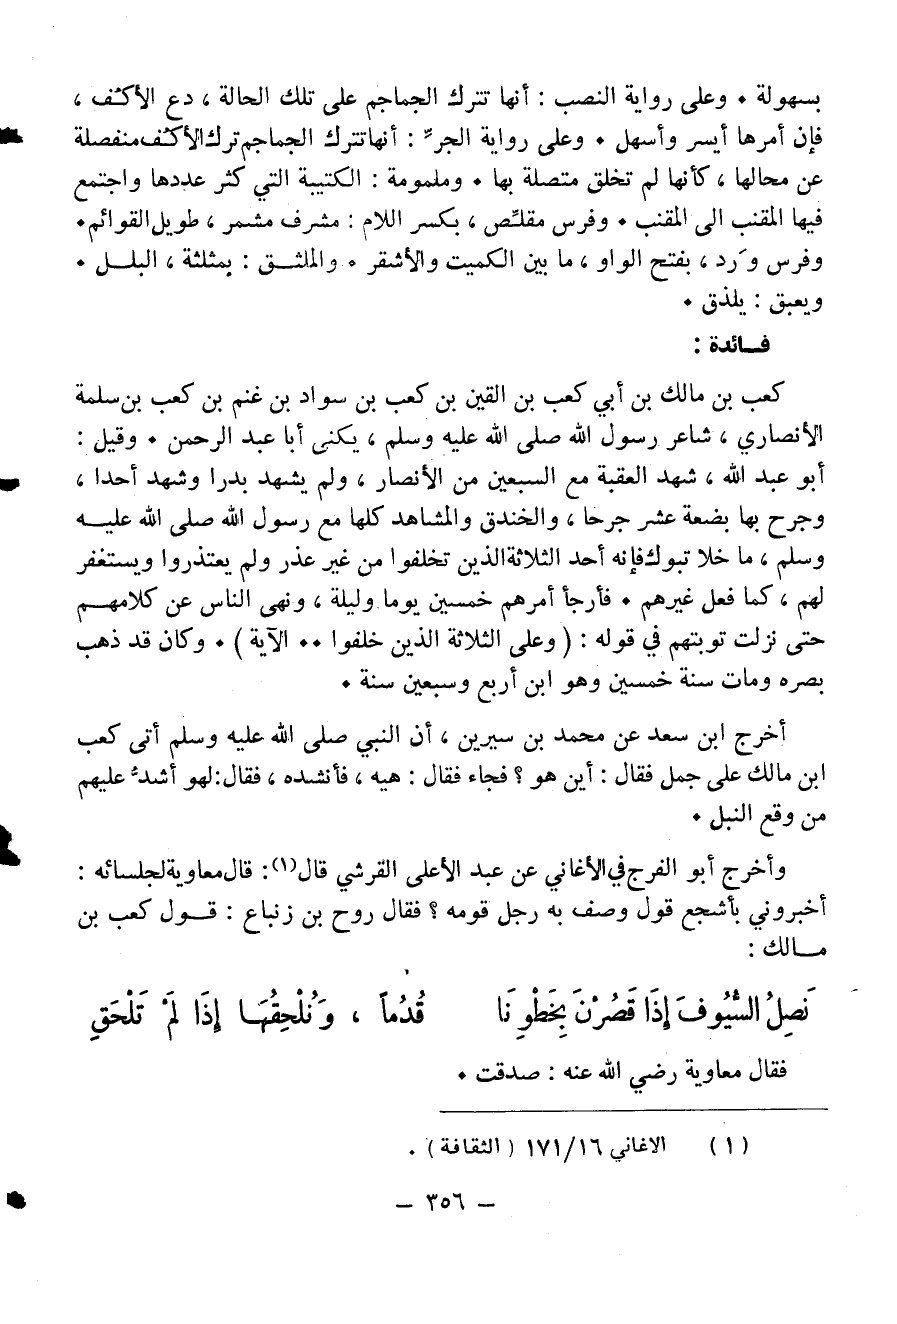 بسهولة • وعلى رواية النصب : أنها تترك الجماجم على تلك الحالة ، دع الأكف ،
فإن أمرها أيسر وأسهل • وعلى رواية الجرّ : أنها تترك الجماجم ترك الأكف منفصلة
عن محالها ، كأنها لم تخلق متصلة بها • وملمومة : الكتيبة التي كثر عددها واجتمع
فيها المقنب الى المقنب • وفرس مقلِّص ، بكسر اللام : مشرف مشمر ، طويل القوائم •
وفرس وَرد ، بفتح الواو ، ما بين الكميت والأشقر • والملثـق : بمثلثة ، البلـل •
ويعبق : يلذق •
فـائدة :
كعب بن مالك بن أبي كعب بن القين بن كعب بن سواد بن غنم بن كعب بن سلمة
الأنصاري ، شاعر رسول الله صلى الله عليه وسلم ، يكنى أبا عبد الرحمن • وقيل :
أبو عبد الله ، شهد العقبة مع السبعين من الأنصار ، ولم يشهد بدرا وشهد أحدا ،
وجرح بها بضعة عشر جرحا ، والخندق والمشاهد كلها مع رسول الله صلى الله عليـه
وسلم ، ما خلا تبوك فإنه أحد الثلاثة الذين تخلفوا من غير عذر ولم يعتذروا ويستغفر
لهم ، كما فعل غيرهم • فأرجأ أمرهم خمسين يوما وليلة ، ونهى الناس عن كلامهـم
حتى نزلت توبتهم في قوله : ( وعلى الثلاثة الذين خلفوا •• الآية ) • وكان قد ذهب
بصره ومات سنة خمسين وهو ابن أربع وسبعين سنة •
أخرج ابن سعد عن محمد بن سيرين ، أن النبي صلى الله عليه وسلم أتى كعب
ابن مالك على جمل فقال : أين هو ؟ فجاء فقال : هيه ، فأنشده ، فقال : لهو أشدّ عليهم
من وقع النبل •
وأخرج أبو الفرج في الأغاني عن عبد الأعلى القرشي قال(١) : قال معاوية لجلسائه :
أخبروني بأشجع قول وصف به رجل قومه ؟ فقال روح بن زنباع : قـول كعب بن
مـالك :
نَصِلُ السُّيُوفَ إِذَا قَصُرْنَ بِخَطْوِنَا قُدُماً ، وَنُلْحِقُهَا إِذَا لَمْ تَلْحَقِ
فقال معاوية رضي الله عنه : صدقت •
(١) الاغاني ١٧١/١٦ (الثقافة) .
– ٣٥٦ –